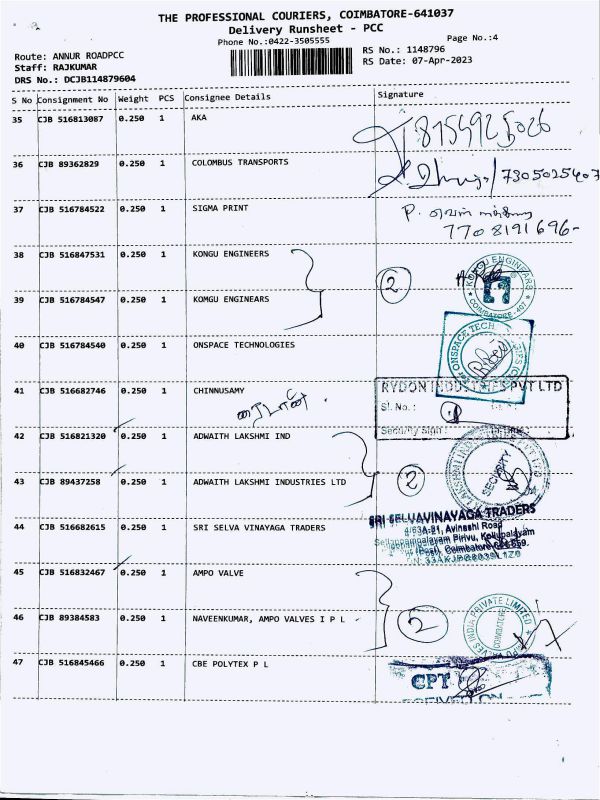 THE PROFESSIONAL COURIERS, COIMBATORE-641037
Delivery Runsheet - PCC
Phone No.:0422-3505555
Page No.:4
Route: ANNUR ROADPCC
RS No.: 1148796
Staff: RAJKUMAR
RS Date: 07-Apr-2023
DRS No.: DCJB114879604
S No Consignment No Weight PCS Consignee Details Signature
35 CJB 516813087 0.250 1 AKA
36 CJB 89362829 0.250 1 COLOMBUS TRANSPORTS 7305025407
37 CJB 516784522 0.250 1 SIGMA PRINT P.
7708191696-
38 CJB 516847531 0.250 1 KONGU ENGINEERS
2 KONGU ENGINEARS COIMBATORE-407
39 CJB 516784547 0.250 1 KOMGU ENGINEARS
40 CJB 516784540 0.250 1 ONSPACE TECHNOLOGIES ONSPACE TECH
41 CJB 516682746 0.250 1 CHINNUSAMY RYDON INDUSTRIES PVT LTD
Sl. No.:
Security Sign :
42 CJB 516821320 0.250 1 ADWAITH LAKSHMI IND
43 CJB 89437258 0.250 1 ADWAITH LAKSHMI INDUSTRIES LTD 2 SECURITY
44 CJB 516682615 0.250 1 SRI SELVA VINAYAGA TRADERS SRI SELVAVINAYAGA TRADERS
Avinashi Road
Pirivu, Kollupalayam
Coimbatore
45 CJB 516832467 0.250 1 AMPO VALVE
46 CJB 89384583 0.250 1 NAVEENKUMAR, AMPO VALVES I P L 2 VES INDIA PRIVATE LIMITED COIMBATORE
47 CJB 516845466 0.250 1 CBE POLYTEX P L CPT